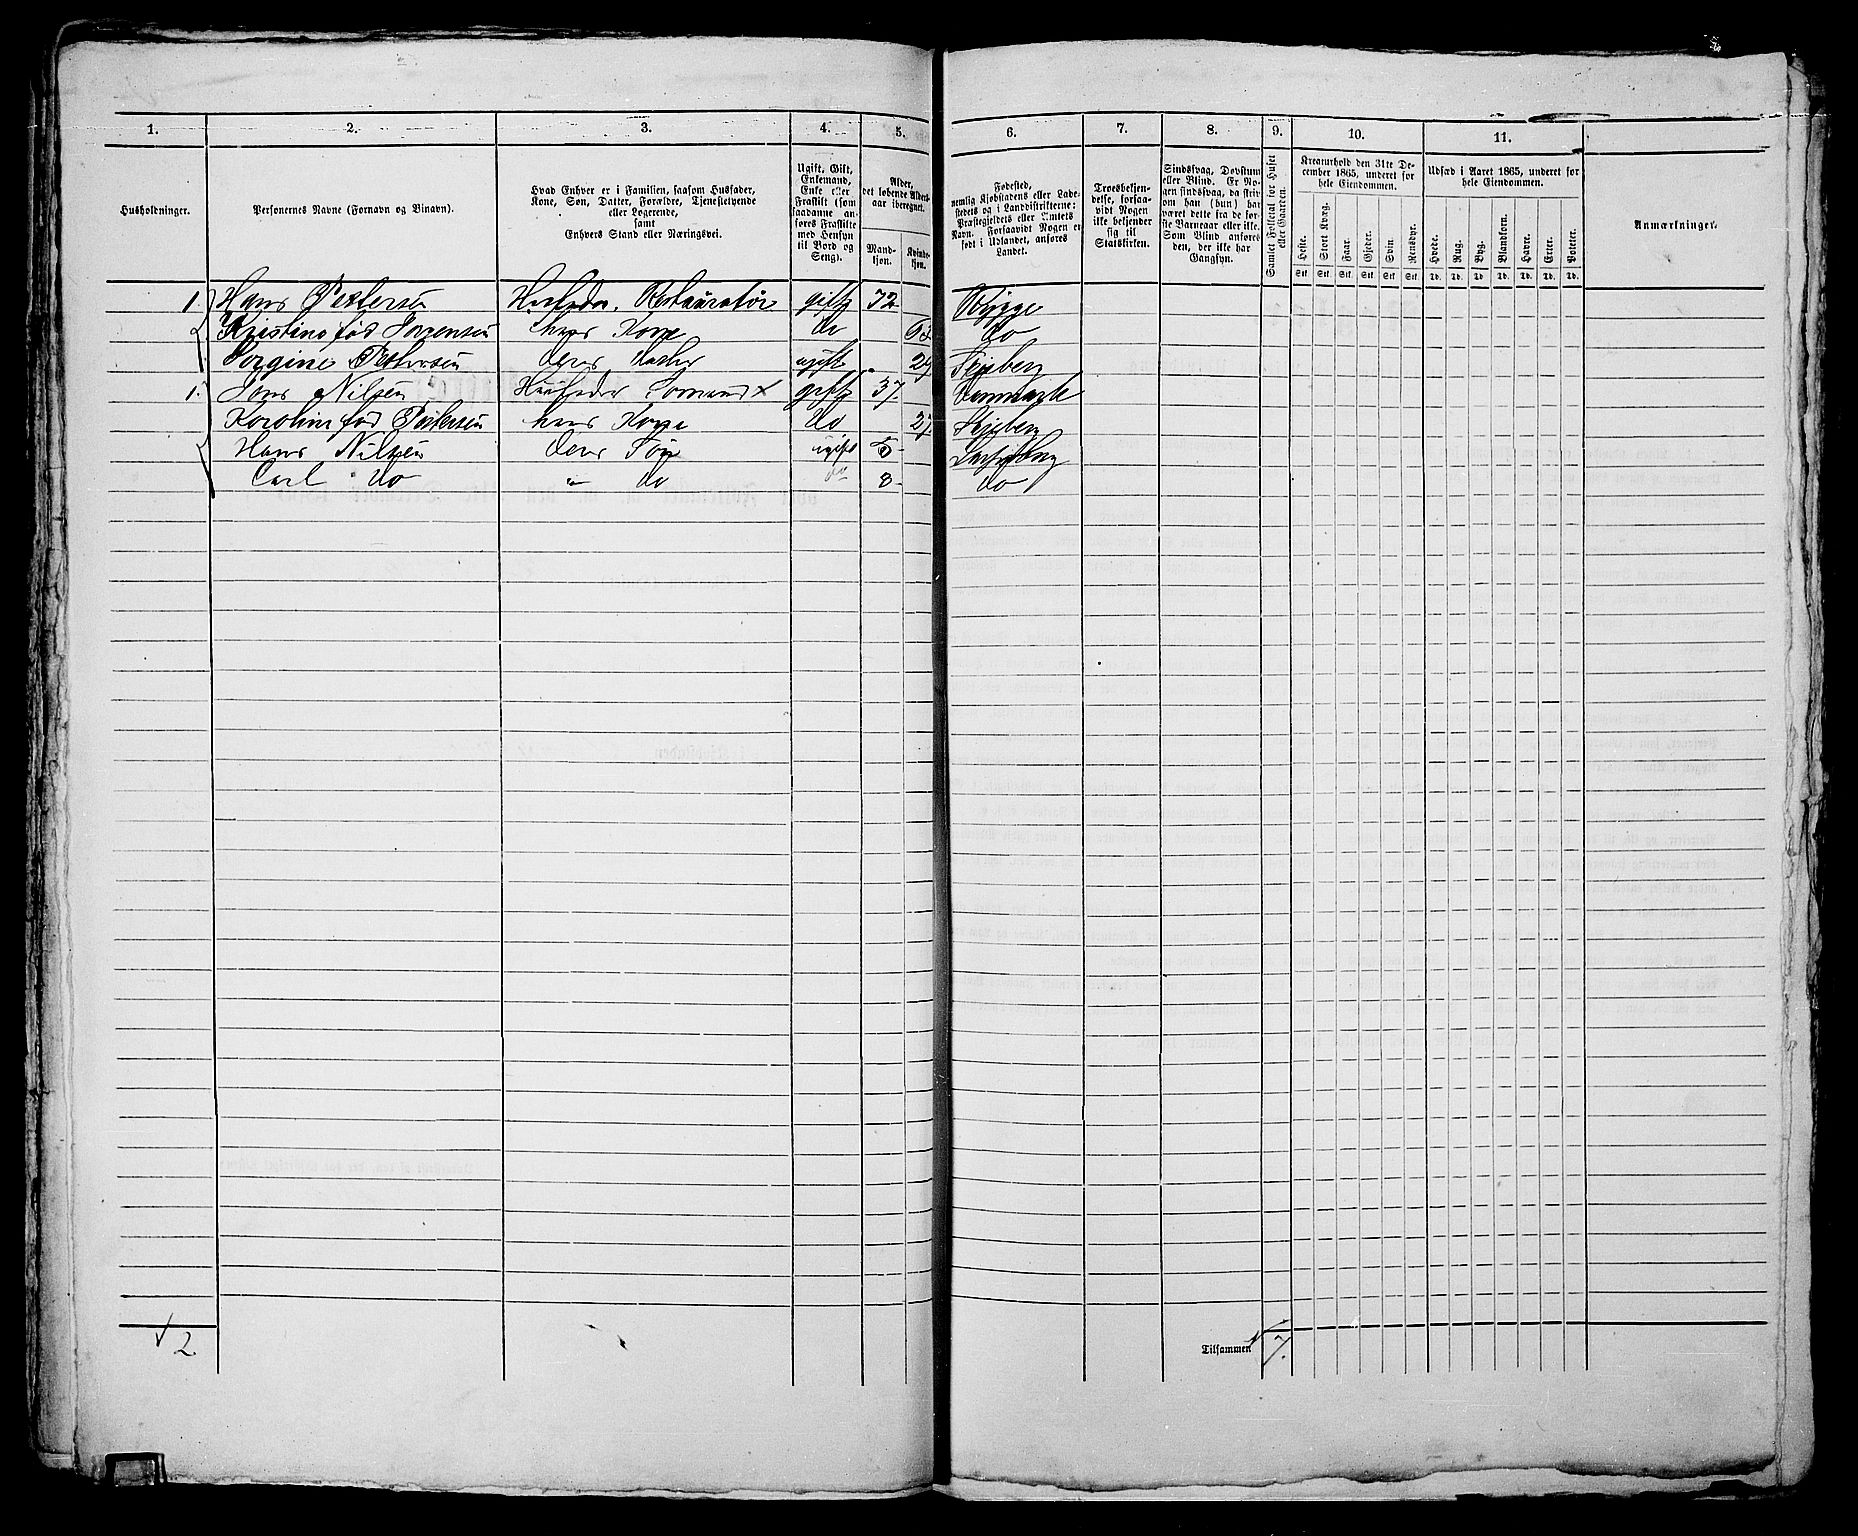 1. 2. 3. 4. 5. 6. 7. 8. 9. 10. 11.
Husholdninger.
Personernes Navne (Fornavn og Binavn).
Hvad Enhver er i Familien, saasom Husfader,
Kone, Søn, Datter, Forældre, Tjenestetyende
eller Logerende,
samt
Enhvers Stand eller Næringsvei.
Ugift, Gift,
Enkemand,
Enke eller
Fraskilt (som
saadanne an-
føres Fraskilte
med Hensyn
til Bord og
Seng).
Alder,
det løbende Alders-
aar iberegnet.
Mand-
kjøn.
Kvinde-
kjøn.
Fødested,
nemlig Kjøbstadens eller Lade-
stedets og i Landdistrikterne:
Præstegjeldets eller Amtets
Navn. Forsaavidt Nogen er
født i Udlandet, anføres
Landet.
Troesbekjen-
delse, forsaa-
vidt Nogen
ikke bekjender
sig til
Statskirken.
Sindssvag, Døvstum
eller Blind. Er No-
gen sindssvag, da skriv
om han (hun) har
været dette fra de før-
ste Barneaar eller ikke.
Som Blind anføres
den, der ikke har
Gangsyn.
Samlet Folketal for Huset
eller Gaarden.
Kreaturhold den 31te De-
cember 1865, underet for
hele Eiendommen.
Heste. Stort Kvæg. Faar. Gjeder. Svin. Rensdyr.
Stk. Stk. Stk. Stk. Stk. Stk.
Udsæd i Aaret 1865, underet for
hele Eiendommen.
Hvede. Rug. Byg. Blandkorn. Havre. Erter. Poteter.
Td. Td. Td. Td. Td. Td. Td.
Anmærkninger.
1. Hans Pettersen Husfader, Restauratør gift 72 Rygge
Kristine fød Jorgensen hans Kone do 63 do
Jorgine Pettersen deres Datter ugift 29 Skjeberg
1. Jens Nilsen Husfader Sømand x gift 37. Danmark
Karoline fød Pettersen hans Kone do 27. Skjeberg
Hans Nilsen deres Søn ugift 5 Sarpsborg
Carl do " do do 8 do
2
Tilsammen 7.